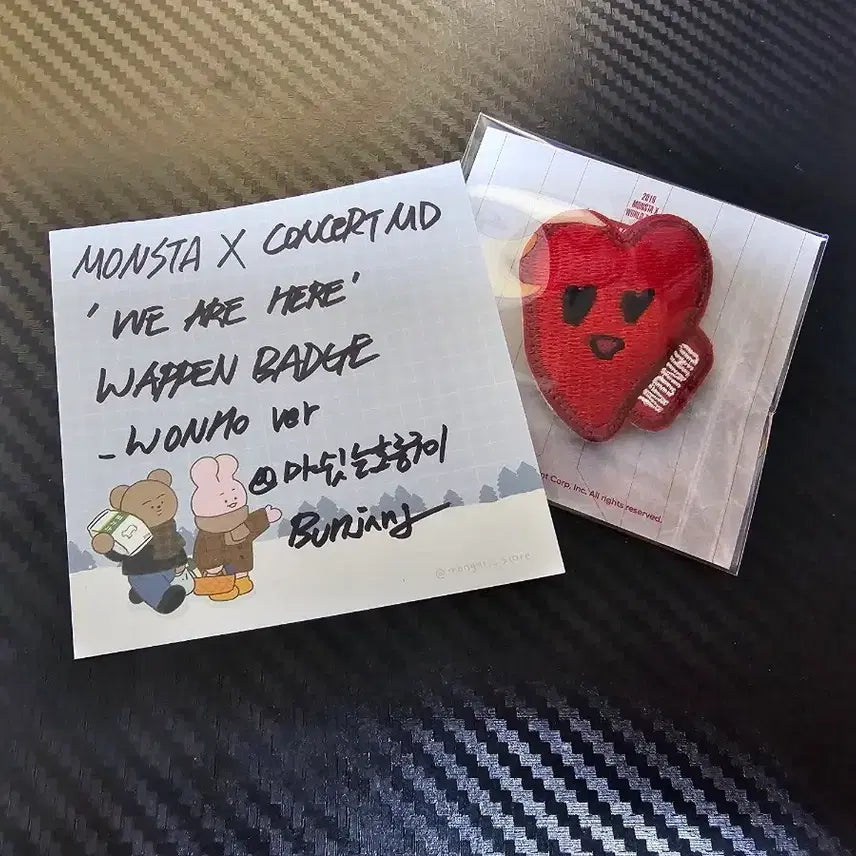 MONSTA X CONCERT MD
'WE ARE HERE'
WAPPEN BADGE
-WONHO ver
@마싰는호롱구이
Bunjang
2019
MONSTA X
WORLD
WONHO
nt Corp, Inc. All rights reserved.